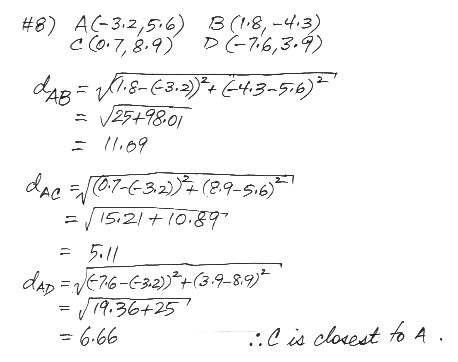 #8) A(-3.2,5.6) B(1.8,-4.3)
C(0.7,8.9) D(-7.6,3.9)
dAB = √(1.8-(-3.2))²+(-4.3-5.6)²
= √25+98.01
= 11.09
dAC = √(0.7-(-3.2))²+(8.9-5.6)²
= √15.21+10.89
= 5.11
dAD = √(-7.6-(-3.2))²+(3.9-8.9)²
= √19.36+25
= 6.66 ∴ C is closest to A.